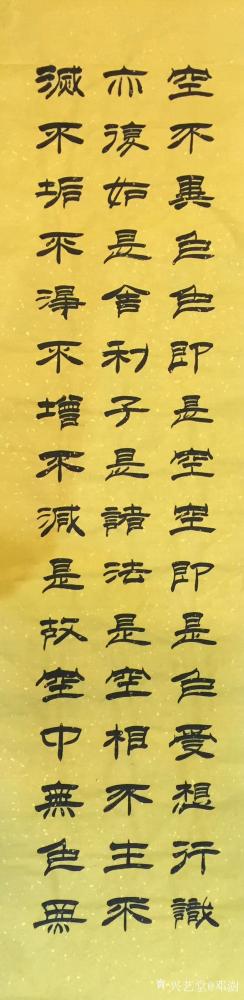 空不異色色即是空空即是色受想行識
亦復如是舍利子是諸法是空相不生不
滅不垢不淨不增不減是故空中無色無
兴艺堂@邓澍